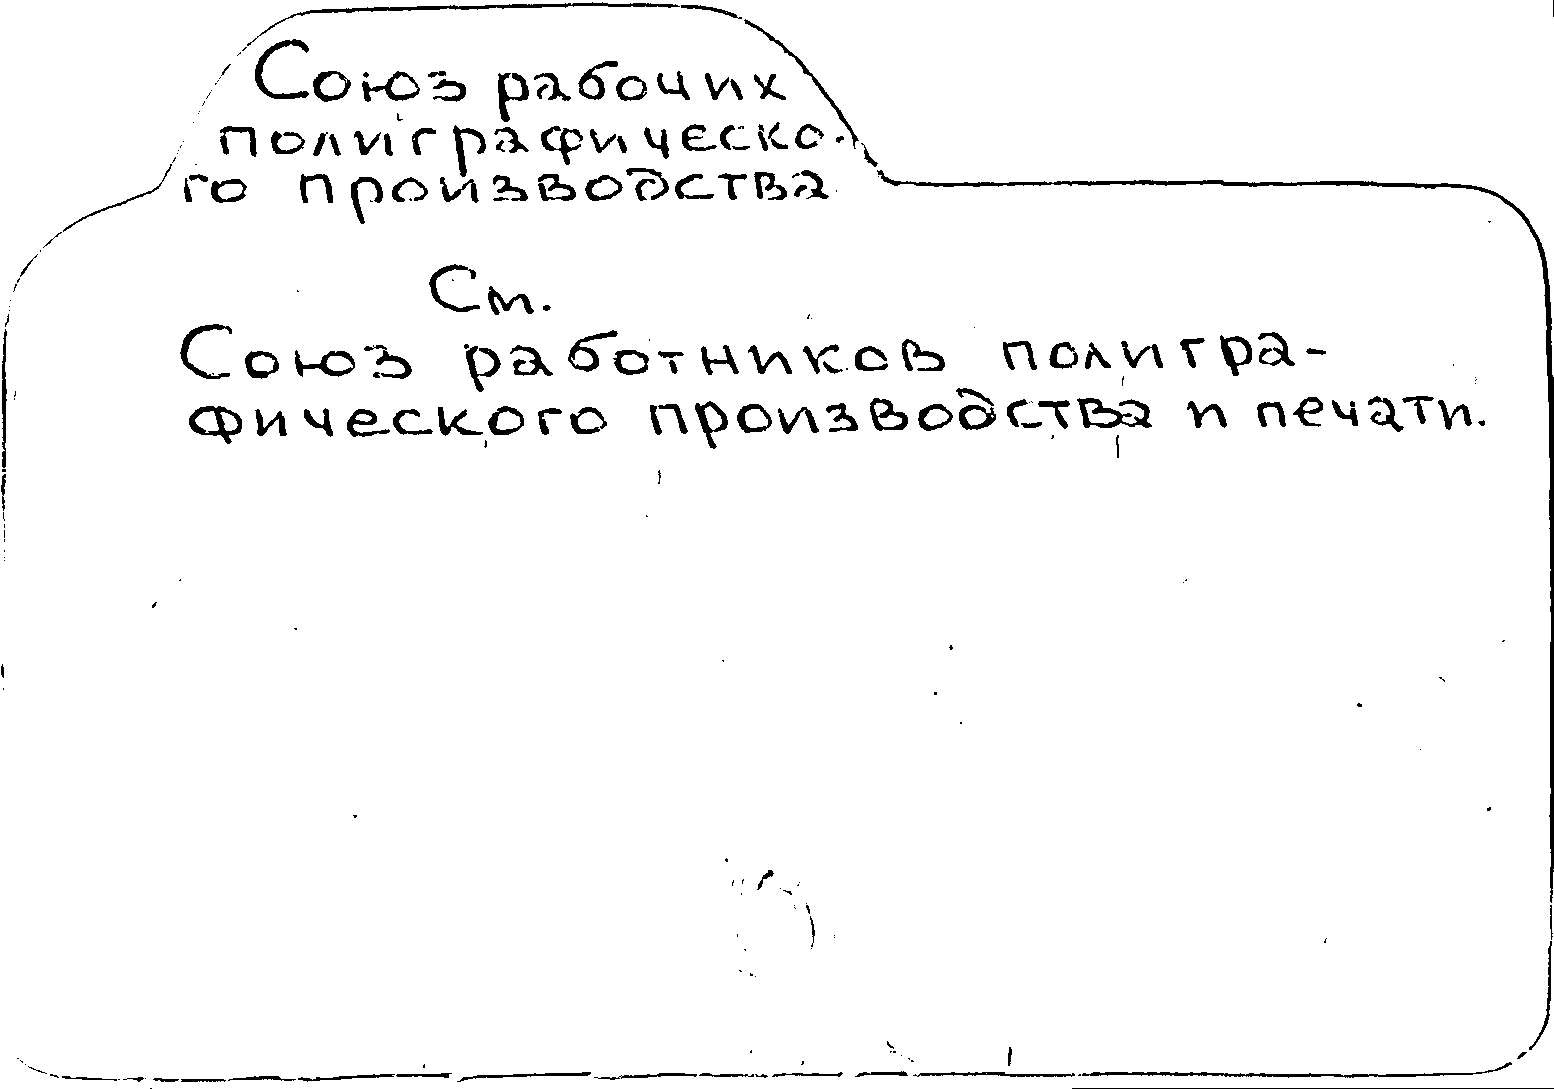 Союз рабочих
полиграфическо-
го производства
См.
Союз работников полигра-
фического производства и печати.